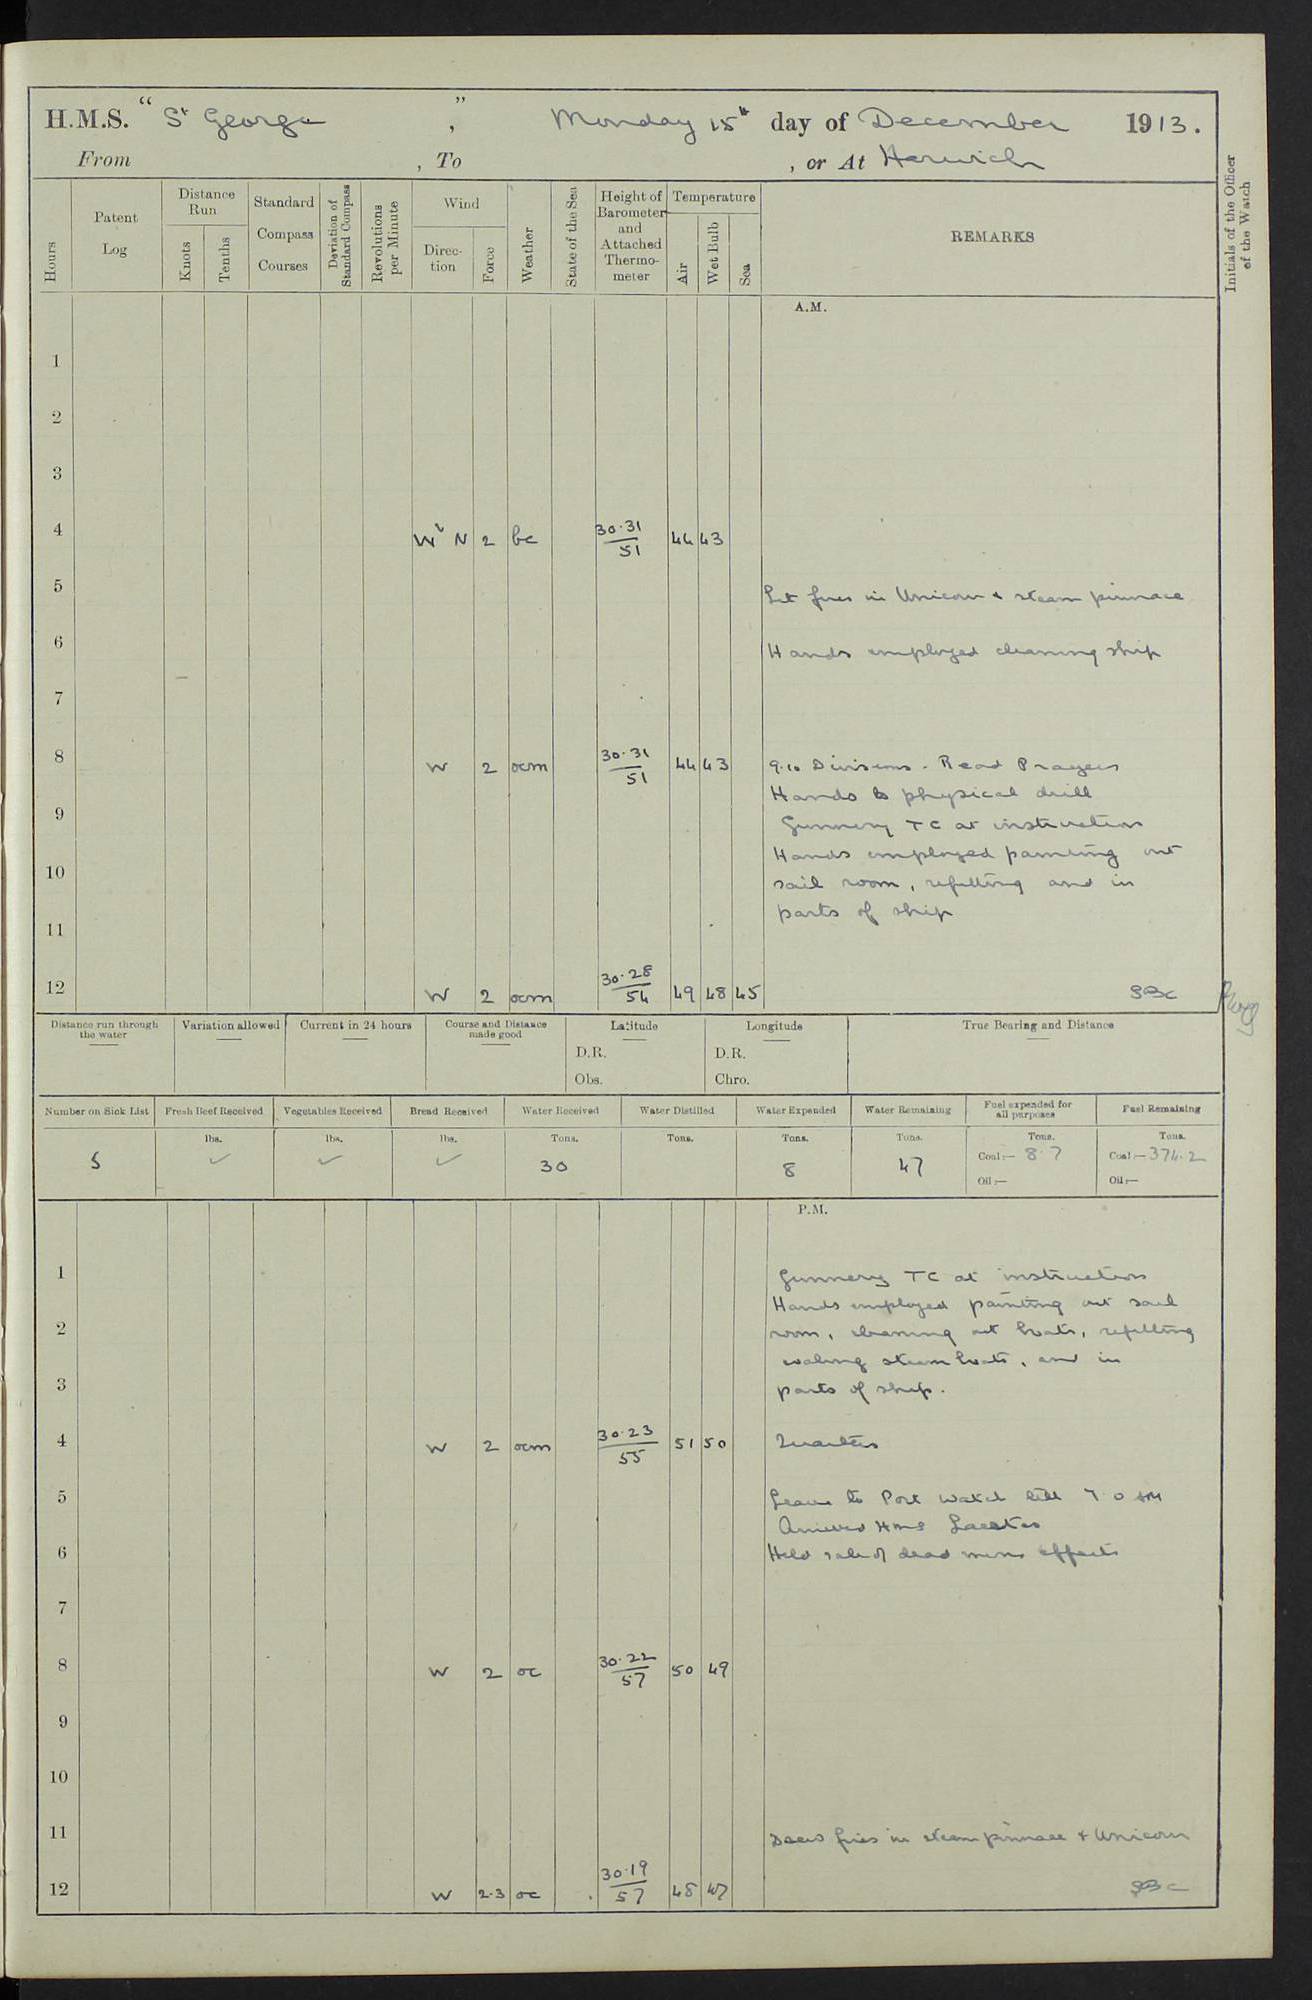 H.M.S. " St George " , Monday 15th day of December 1913.
From , To , or At Harwich
Hours
Patent Log
Distance Run
Knots
Tenths
Standard Compass Courses
Deviation of Standard Compass
Revolutions per Minute
Wind
Direction
Force
Weather
State of the Sea
Height of Barometer and Attached Thermometer
Temperature
Air
Wet Bulb
Sea
REMARKS
Initials of the Officer of the Watch
A.M.
1
2
3
4 W N 2 bc 30.31 51 44 43
5 Lit fires in Unicorn & steam pinnace
6 Hands employed cleaning ship
7
8 W 2 ocm 30.31 51 44 43 9.10 Divisions. Read Prayers
Hands to physical drill
9 Gunnery TC at instruction
Hands employed painting out
10 sail room, refitting and in
parts of ship
11
12 W 2 ocm 30.28 54 49 48 45
Distance run through the water
Variation allowed
Current in 24 hours
Course and Distance made good
Latitude
D.R.
Obs.
Longitude
D.R.
Chro.
True Bearing and Distance
Number on Sick List
Fresh Beef Received
Vegetables Received
Bread Received
Water Received
Water Distilled
Water Expended
Water Remaining
Fuel expended for all purposes
Fuel Remaining
lbs. lbs. lbs. Tons. Tons. Tons. Tons. Tons. Tons.
5 ✓ ✓ ✓ 30 8 47 Coal:— 8.7 Coal:— 374.2
Oil:— Oil:—
P.M.
1 Gunnery TC at instruction
Hands employed painting out sail
2 room, cleaning out boats, refitting
coaling steam boats, and in
3 parts of ship.
4 W 2 ocm 30.23 55 51 50 Quarters
5 Leave to Port Watch till 7.0 AM
Arrived HMS
6 Held sale of dead mens effects
7
8 W 2 oc 30.22 57 50 49
9
10
11 Drew fires in steam pinnace & Unicorn
12 W 2.3 oc 30.19 57 48 47